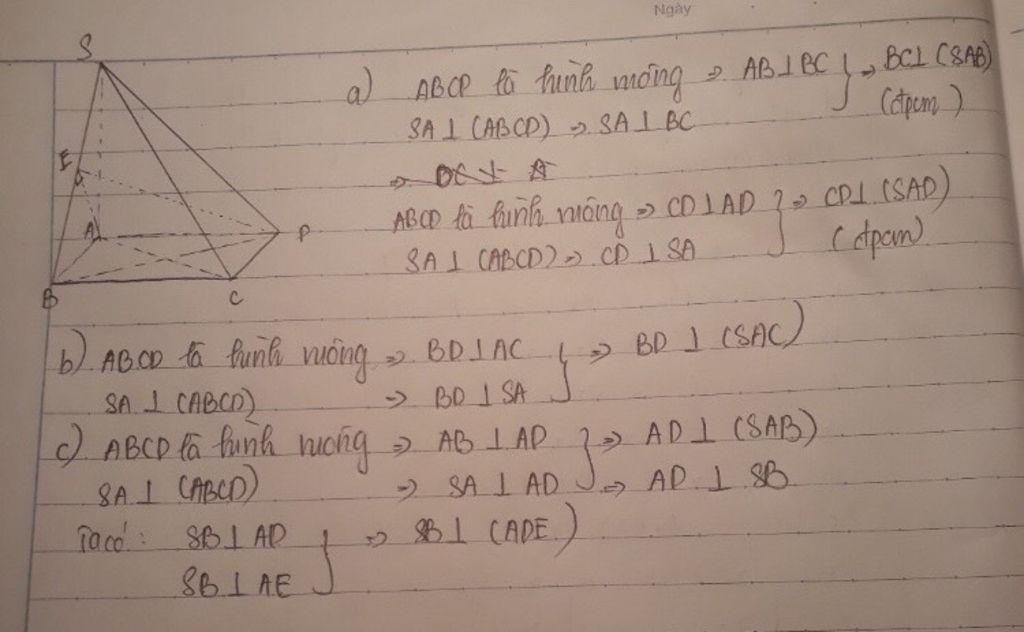 Ngày
S
E
A
D
B
C
a) ABCD là hình vuông => AB⊥BC } => BC⊥(SAB)
SA⊥(ABCD) => SA⊥BC (đpcm)
ABCD là hình vuông => CD⊥AD } => CD⊥(SAD)
SA⊥(ABCD) => CD⊥SA (đpcm)
b) ABCD là hình vuông => BD⊥AC } => BD⊥(SAC)
SA⊥(ABCD) => BD⊥SA
c) ABCD là hình vuông => AB⊥AD } => AD⊥(SAB)
SA⊥(ABCD) => SA⊥AD => AD⊥SB
Ta có: SB⊥AD } => SB⊥(ADE)
SB⊥AE